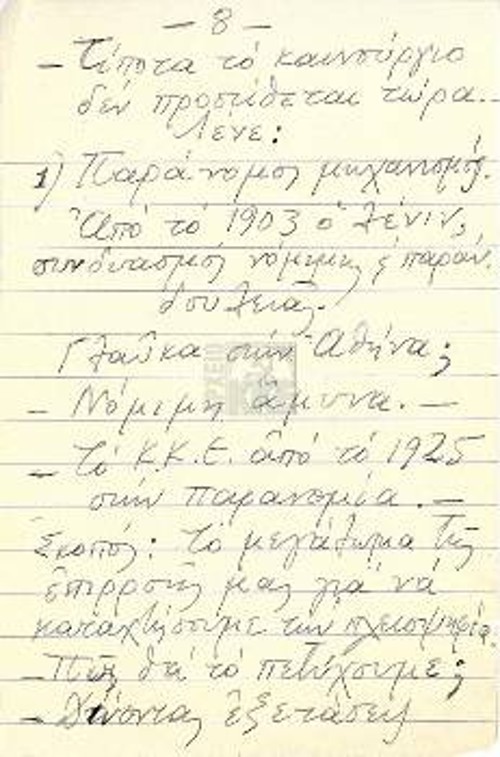 — 8 —
— Τίποτα τό καινούργιο
δέν προστίθεται τώρα..
Λένε:
1) Παράνομος μηχανισμός.
Ἀπό τό 1903 ὁ Λένιν,
συνδυασμός νόμιμης ς' παράν.
δουλειάς.
Γλαῦκα στήν Ἀθήνα;
— Νόμιμη ἄμυνα. —
— Τό Κ.Κ.Ε. ἀπό τό 1925
στήν παρανομία. —
Σκοπός: Τό μεγάλωμα τῆς
ἐπιρροῆς μας γιά νά
καταχτήσουμε τήν πλειοψηφία.
— Πῶς θά τό πετύχουμε;
— Δίνοντας ἐξετάσεις